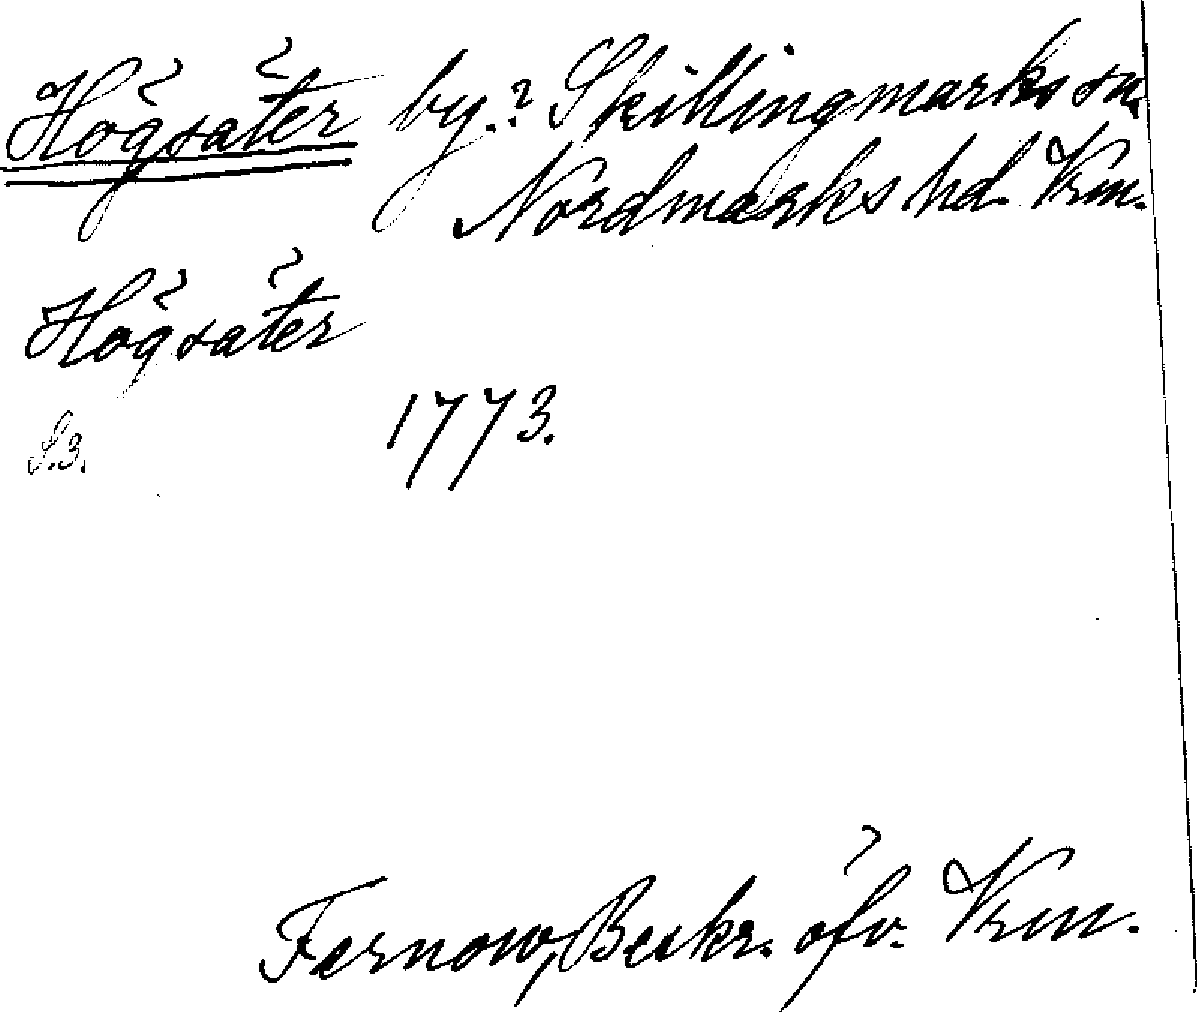 Högsäter by.? Skillingmarks sn.
Nordmarks hd. Vrm.
Högsäter
S. 3. 1773.
Fernow, Beskr. öfv. Vrm.